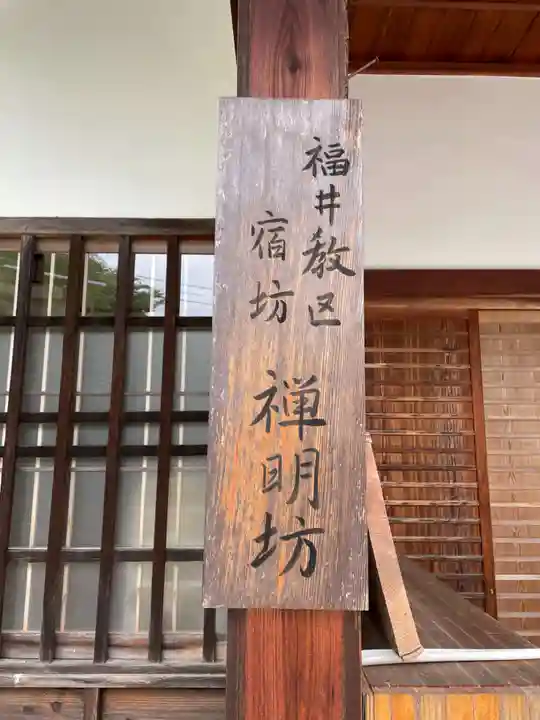 福井教区
宿坊
禅明坊